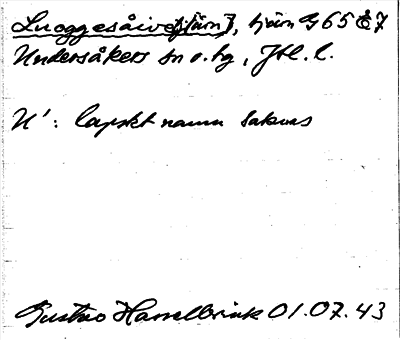 Luoggesåive[tjärn], tjärn G 65 Å 7
Undersåkers sn o. hg, Jtl. l.
U': lapskt namn saknas
Gustav Hasselbrink 01.07.43